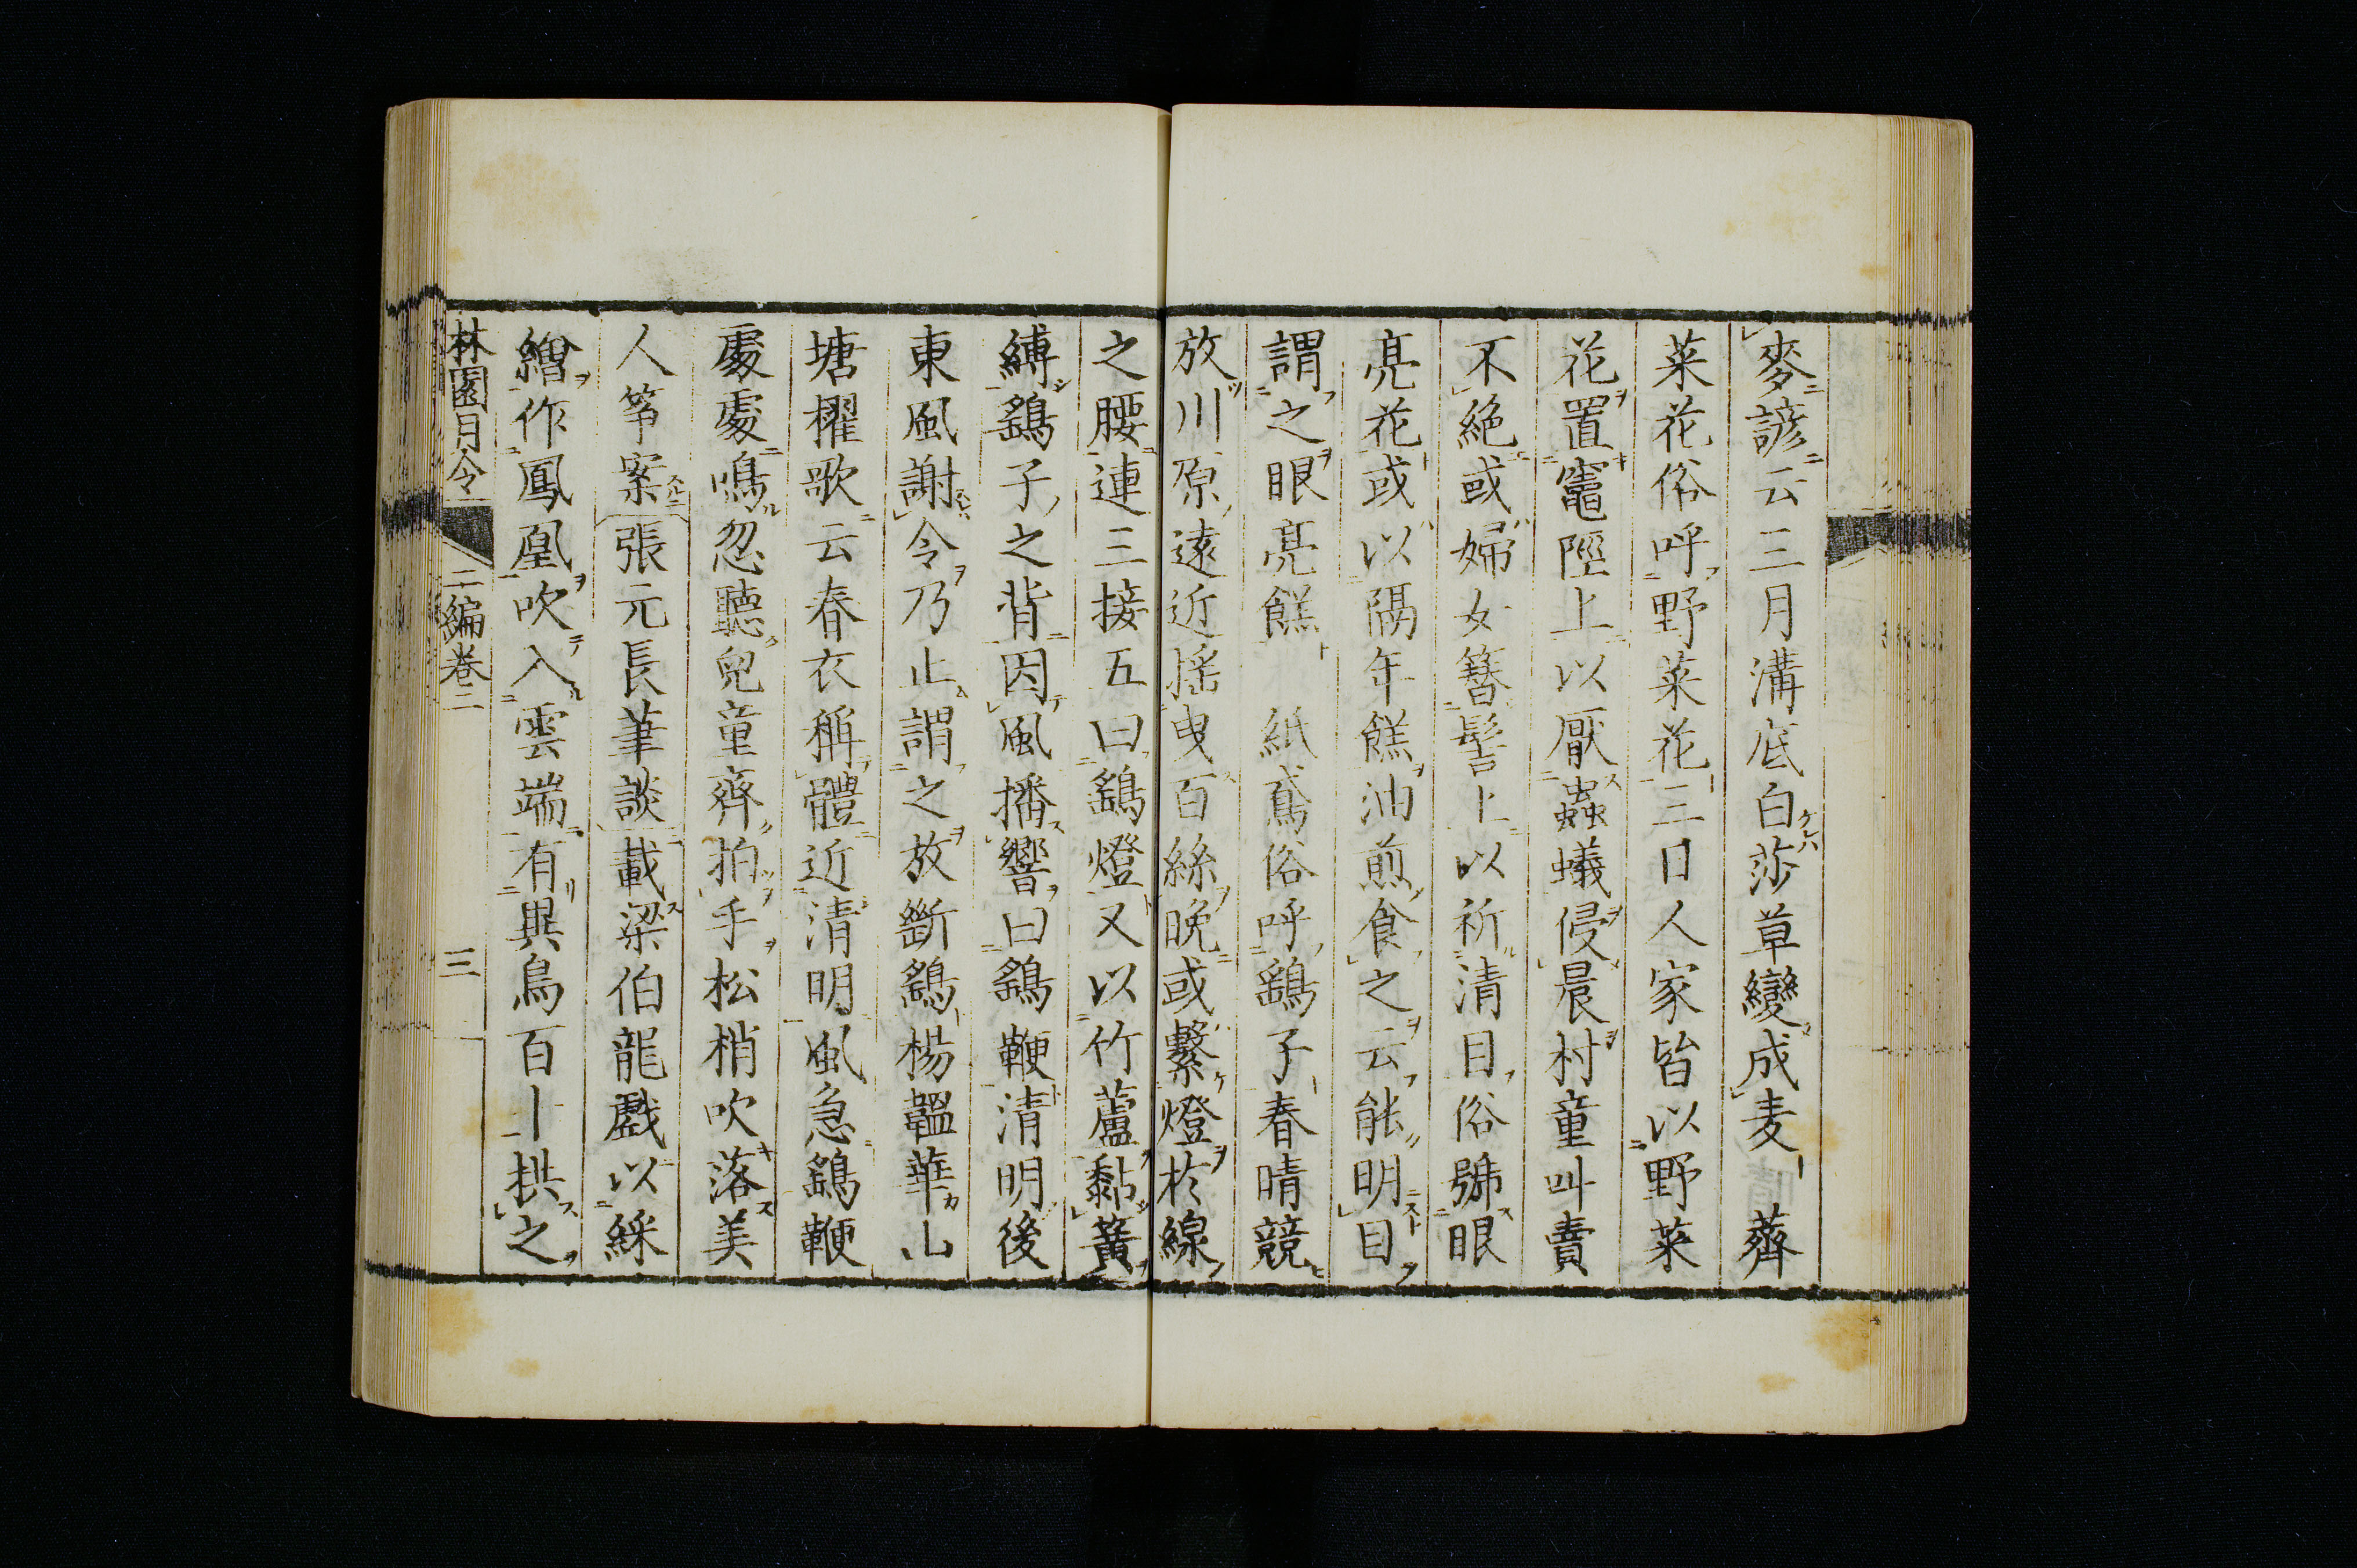 麥諺云三月溝底白莎草變成麦　薺
菜花俗呼野菜花三日人家皆以野菜
花置竈陘上以厭蟲蟻侵晨村童叫賣
不絕或婦女簪髻上以祈清目俗號眼
亮花或以隔年餻油煎食之云能明目
謂之眼亮餻　紙鳶俗呼鷂子春晴競
放川原遠近搖曳百絲晚或繫燈於線
之腰連三接五曰鷂燈又以竹蘆黏簧
縛鷂子之背因風播響曰鷂鞭清明後
東風謝令乃止謂之放斷鷂楊韞華山
塘櫂歌云春衣稱體近清明風急鷂鞭
處處鳴忽聽兒童齊拍手松梢吹落美
人筝案張元長筆談載梁伯龍戲以綵
繒作鳳凰吹入雲端有異鳥百十拱之
林園月令
二編卷二
三